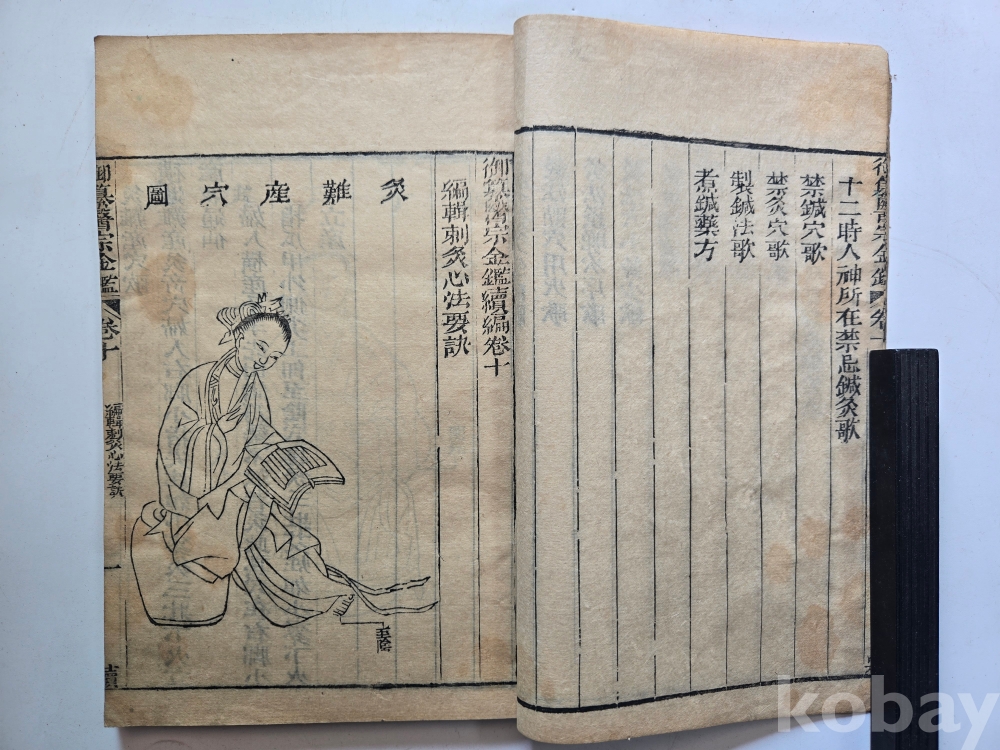 十二時人神所在禁忌鍼灸歌
禁鍼穴歌
禁灸穴歌
製鍼法歌
煮鍼藥方
御纂醫宗金鑑續編卷十
編輯刺灸心法要訣
灸難產穴圖
至陰
御纂醫宗金鑑
卷十
編輯刺灸心法要訣
一
kobay